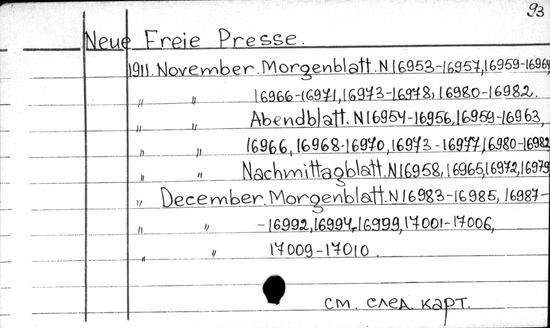 93
Neue Freie Presse.
1911. November. Morgenblatt. N16953-16957, 16959-16964
" " 16966-16971, 16973-16978, 16980-16982.
" " Abendblatt. N16954-16956, 16959-16963,
" " 16966, 16968-16970, 16973-16977, 16980-16982
" " Nachmittagblatt. N16958, 16965, 16972, 16979
" December. Morgenblatt. N16983-16985, 16987-
" " -16992, 16994, 16999, 17001-17006,
" " 17009-17010.
см. след. карт.